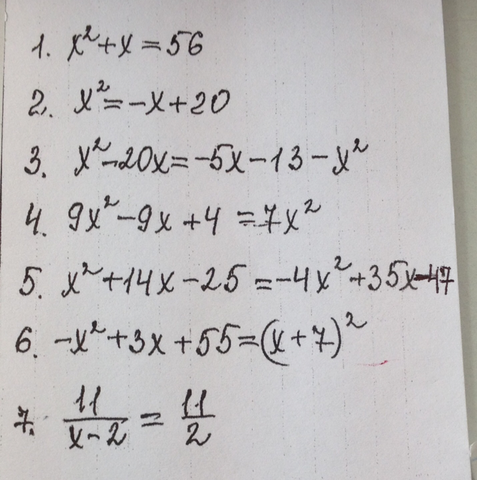 1. x²+x=56
2. x²=-x+20
3. x²-20x=-5x-13-x²
4. 9x²-9x+4=7x²
5. x²+14x-25=-4x²+35x-47
6. -x²+3x+55=(x+7)²
7. 11/(x-2)=11/2